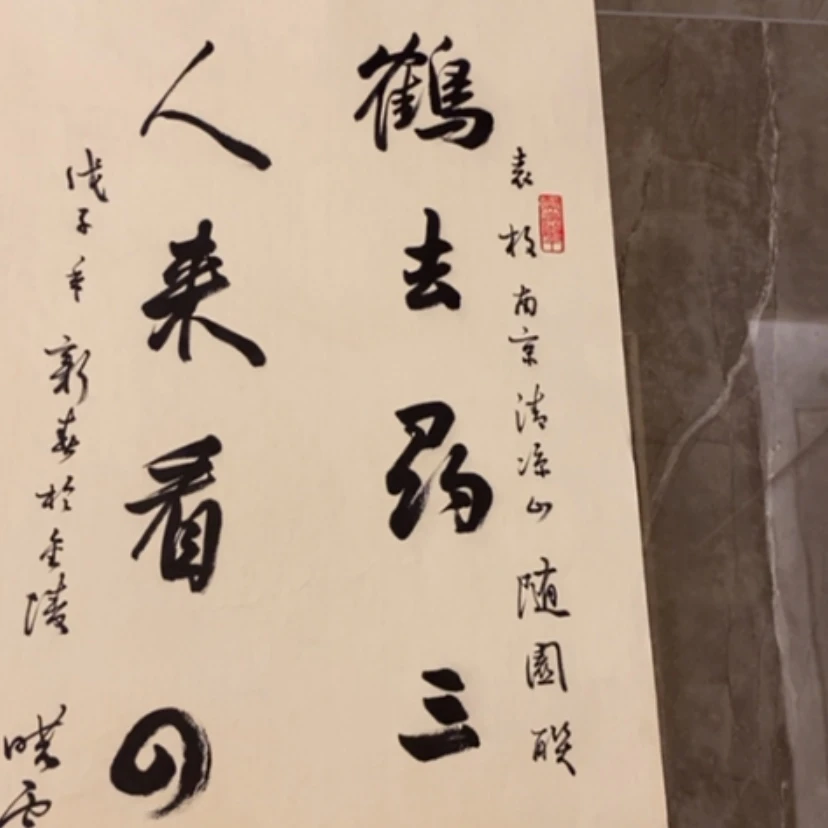 袁枚南京清凉山随園联
鶴去尋三
人来看四
戊子年新春於金陵